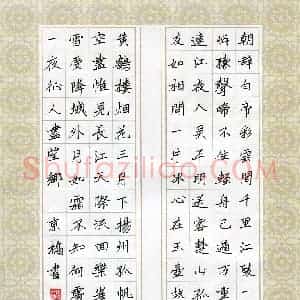 朝辭白帝彩雲間千里江陵一
岸猿聲啼不住輕舟已過萬重
連江夜入吳平明送客楚山孤
友如相問一片冰心在玉壺
黃鶴樓煙花三月下揚州孤帆
空盡惟見長江天際流回樂峰
雪受降城外月如霜不知何處
一夜征人盡望鄉
Shufaziliao.com